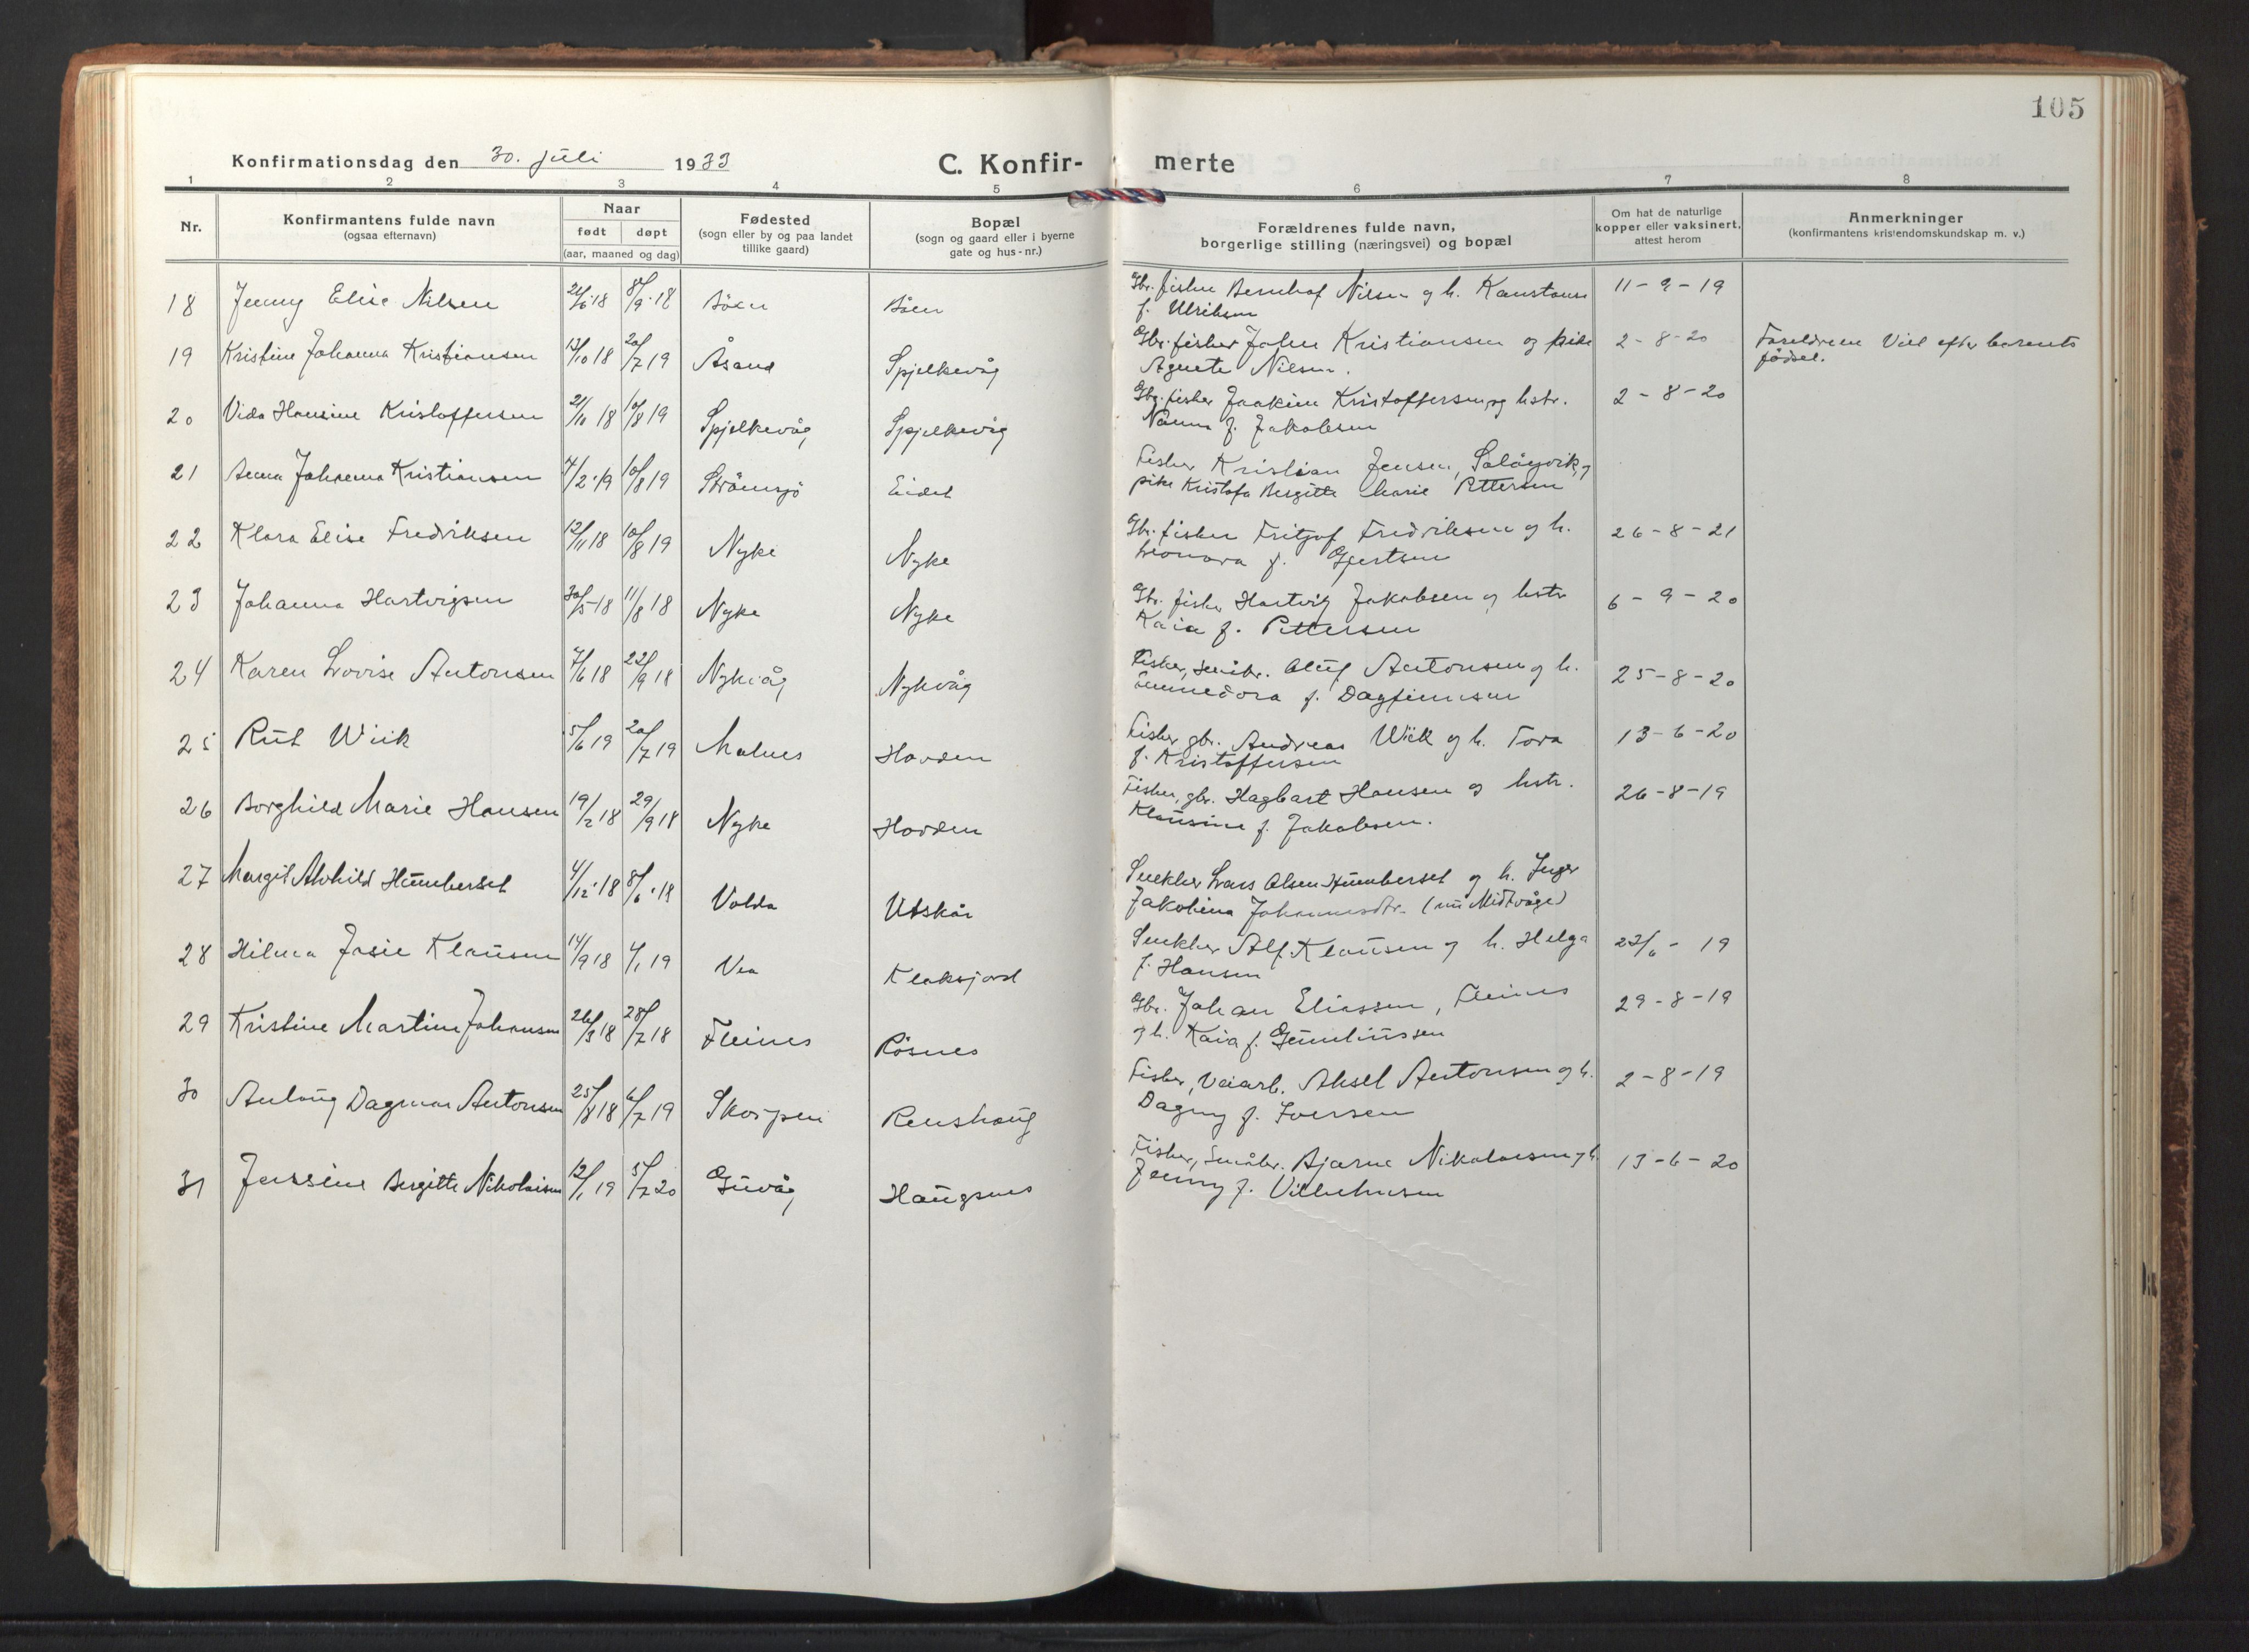 105
Konfirmationsdag den 30. juli 1933
C. Konfir- merte
1 2 3 4 5 6 7 8
Nr.
Konfirmantens fulde navn
(ogsaa efternavn)
Naar
født døpt
(aar, maaned og dag)
Fødested
(sogn eller by og paa landet
tillike gaard)
Bopæl
(sogn og gaard eller i byerne
gate og hus-nr.)
Forældrenes fulde navn,
borgerlige stilling (næringsvei) og bopæl
Om hat de naturlige
kopper eller vaksinert,
attest herom
Anmerkninger
(konfirmantens kristendomskundskap m. v.)
18 Jenny Elise Nilsen 21/6-18 8/9-18 Böen Böen Gbr. fisker Bernhof Nilsen og h. Konstanse 11-9-19
f. Ulriksen
19 Kristine Johanna Kristiansen 13/10 18 20/7 19 Åsand Spjelkevåg Gbr. fisker John Kristiansen og pike 2-8-20 Foreldrene Viet efter barnets
Agnete Nilsen. fødsel.
20 Vida Hansine Kristoffersen 21/11 18 10/8 19 Spjelkevåg Spjelkevåg Gbr. fisker Joakim Kristoffersen og hstr. 2-8-20
Nanna f. Jakobsen
21 Anna Johanna Kristiansen 7/2-19 10/8 19 Strömsjö Eidet Fisker Kristian Jensen, Salöyvik, og
pike Kristofa Bergitte Marie Pettersen
22 Klara Elise Fredriksen 12/11 18 10/8 19 Nyke Nyke Gbr. fisker Fritjof Fredriksen og h. 26-8-21
Leonora f. Gjertsen
23 Johanna Hartvigsen 30/5-18 11/8 18 Nyke Nyke Gbr. fisker Hartvig Jakobsen og hstr 6-9-20
Kaia f. Pettersen
24 Karen Lovise Antonsen 7/6 18 22/9 18 Nykvåg Nykvåg Fisker, småbr. Oluf Antonsen og h. 25-8-20
Emmedora f. Dagfinnsen
25 Rut Wiik 5/6 19 20/7 19 Malnes Hovden Fisker gbr. Andreas Wiik og h. Tora 13-6-20
f. Kristoffersen
26 Borghild Marie Hansen 19/2 18 29/9 18 Nyke Hovden Fisker, gbr. Hagbart Hansen og hstr. 26-8-19
Klausine f. Jakobsen.
27 Margit Alvhild Humberset 4/12-18 8/6-19 Volda Utskår Snekker Lars Olsen Humberset og h. Inger
Jakobina Johannesdtr. (nu Midtvåge)
28 Hilma Josie Klausen 14/9 18 1/1 19 Vea Klaksjord Snekker Alf Klausen og h. Helga 23/6 - 19
f. Hansen
29 Kristine Martine Johansen 26/3 18 28/7 18 Fleines Rösnes Gbr. Johan Eliassen, Fleines 29-8-19
og h. Kaia f. Gunleiussen
30 Anlaug Dagmar Antonsen 25/8 18 6/7 19 Skorpen Renshaug Fisker, Veiarb. Aksel Antonsen og h. 2-8-19
Dagny f. Iversen
31 Jenssine Bergitte Nikolaisen 12/1 19 5/7 20 Guvåg Haugsnes Fisker, Småbr. Bjarne Nikolaisen og h. 13-6-20
Jenny f. Vilhelmsen